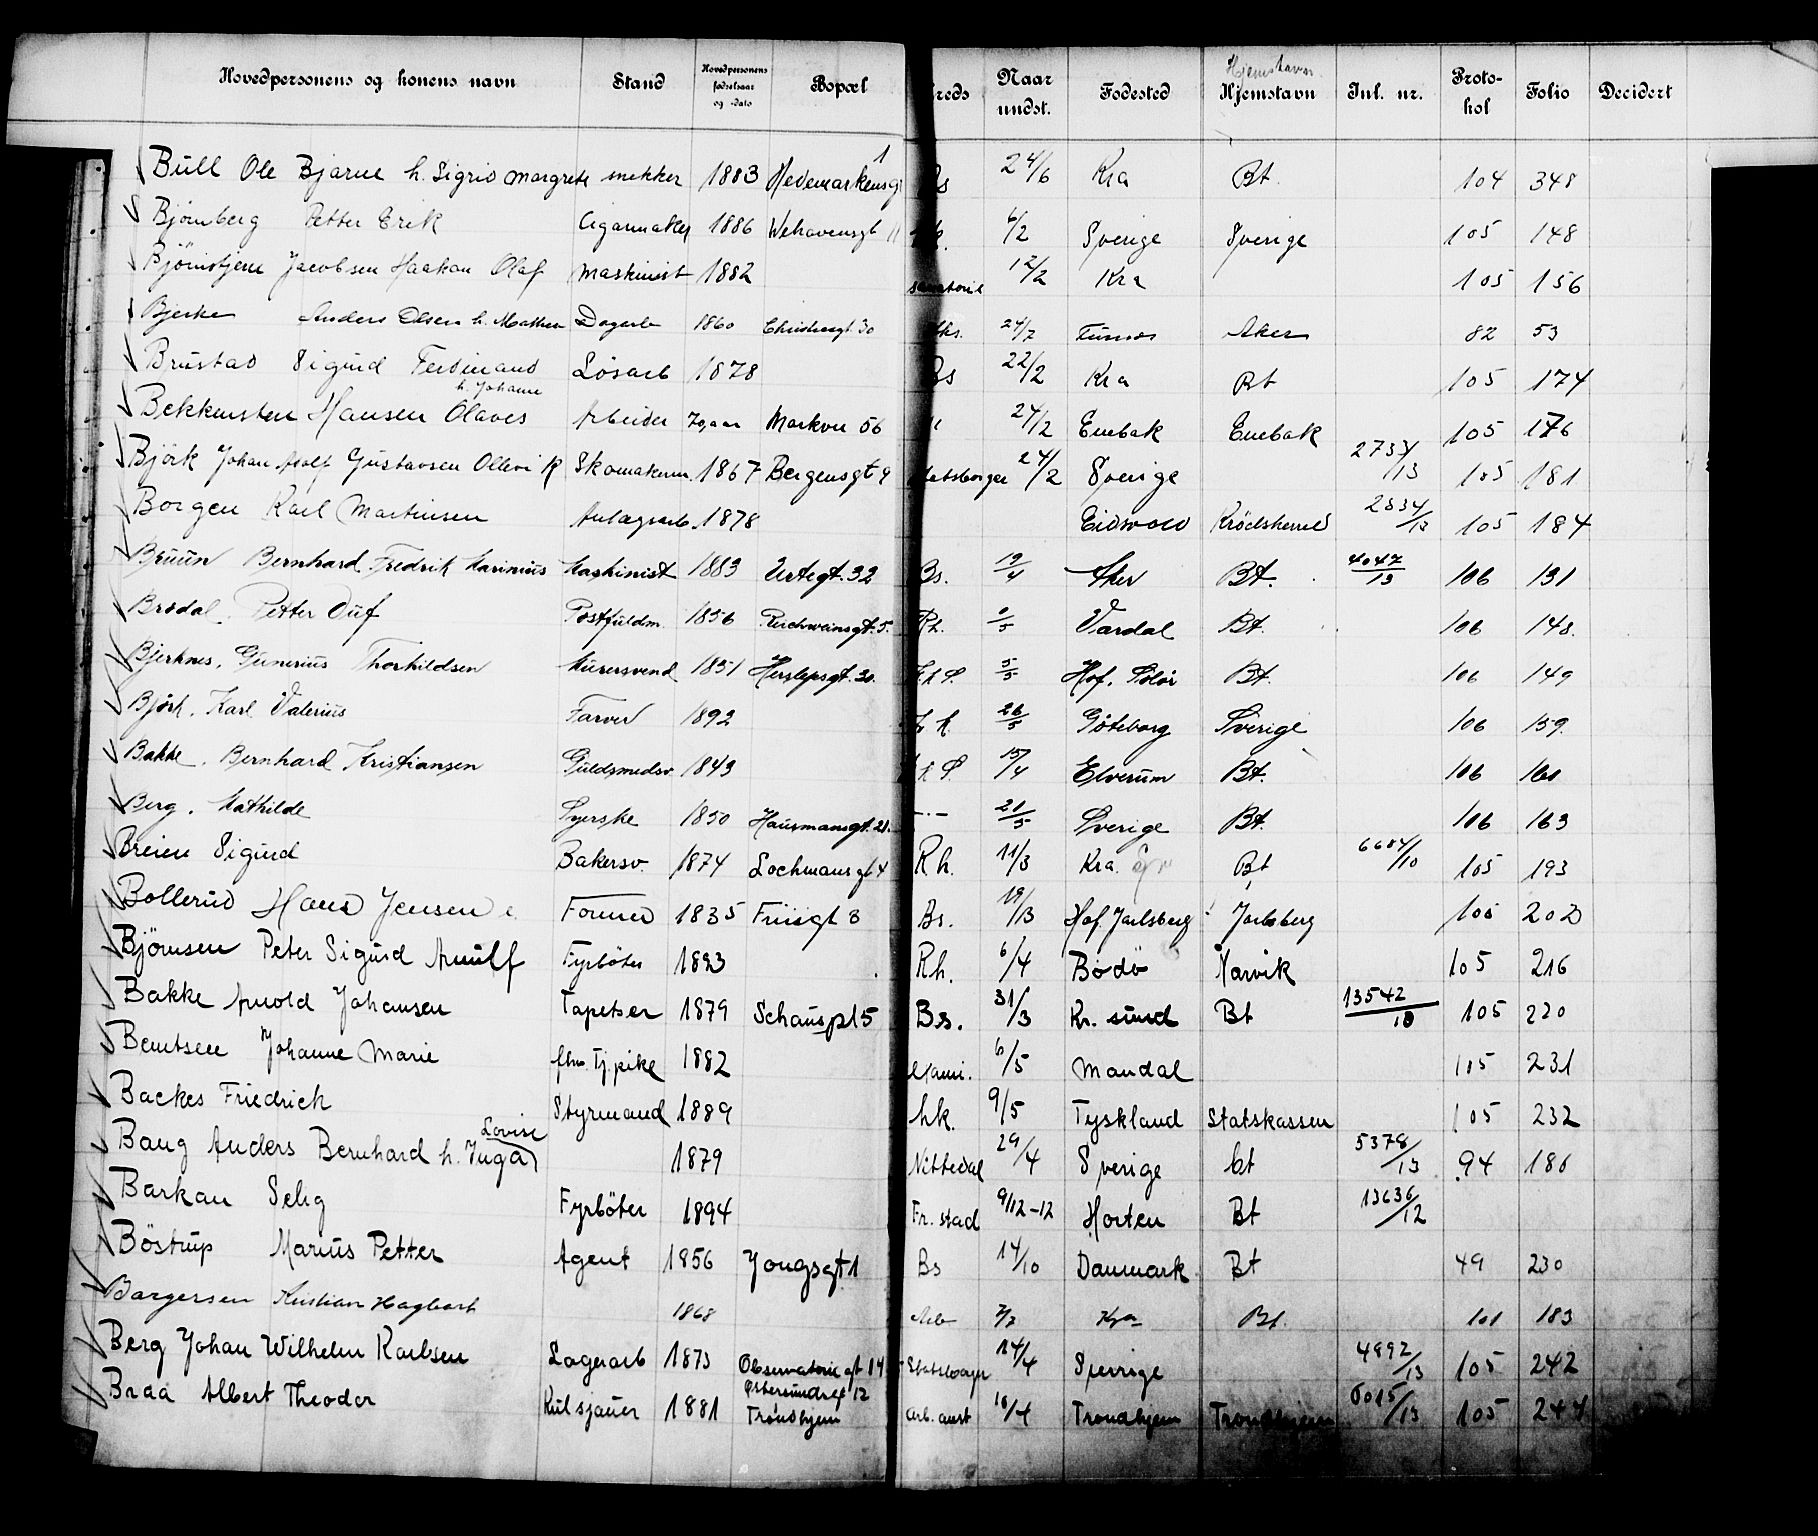 Hovedpersonens og konens navn Stand Hovedpersonens fødselsaar og -dato Bopæl Kreds Naar undst. Fødested Hjemstavn Hjemstavn Jnl. nr. Proto-kol Folio Decidert
Bull Ole Bjarne h. Sigrid Margrete snekker 1883 Hedemarkensgt 1 Bs 24/6 Kra Bt. 104 348
Björnberg Petter Erik Cigarmaker 1886 Welhavensgt 11 6/2 Sverige Sverige 105 148
Björnstjerne Jacobsen Haakon Olaf Maskinist 1882 12/2 Kra 105 156
Bjerke Anders Olsen h. Mathea Dagarb 1860 Christiesgt 30 24/7 Furnes Aker 82 53
Brustad Sigurd Ferdinand Lösarb 1878 Bs 22/2 Kra Bt 105 174
h. Johanne
Bekkensten Hansen Olaves Arbeider 70 aar Markvei 56 " 24/2 Enebak Enebak 105 176
Björk Johan Adolf Gustavsen Skomakerm. 1867 Bergensgt 9 24/2 Sverige 2737/13 105 181
Borgen Karl Martinsen Anlægsarb. 1878 Eidsvold Krödsherred 2334/13 105 184
Bruun Bernhard Fredrik Marinius Maskinist 1883 Urtegt. 32 Bs. 19/4 Aker Bt. 4047/13 106 131
Brodal. Petter Ouf Postfuldm 1856 Reichweinsgt. 5. Rh. 2/5 Vardal Bt. 106 148.
Bjerknes, Gunerius Thorkildsen Murersvend 1851 Herslepsgt. 30. 5/5 Hof. Solør Bt. 106 149
Björk. Karl Valerius Farver 1892 26/5 Göteborg Sverige 106 159.
Bakke. Bernhard Kristiansen Guldsmedsv. 1843 15/4 Elverum Bt. 106 160
Berg. Mathilde Syerske 1850 Hausmansgt. 21. - " - 21/5 Sverige Bt. 106 163
Breien Sigurd Bakersv. 1874 Lochmansgt 4 Rh. 11/3 Kra. Bt 6684/10 105 193
Bollerud Hans Jensen Former 1835 Friisgt 8 Bs. 19/3 Hof. Jarlsberg Jarlsberg 105 202
Björnsen Peter Sigurd Arnulf Fyrböter 1893 Rh. 6/4 Bodö Narvik 105 216
Bakke Arnold Johansen Tapetser 1879 Schauspl 5 Bs. 31/3 Kr. sund Bt 13542/10 105 220
Berntsen Johanne Marie Tj.pike 1882 6/5 Mandal 105 231
Backes Friedrich Styrmand 1889 hk. 9/5 Tyskland Statskassen 105 232
Lovise
Baug Anders Bernhard h. Inga 1879 Nittedal 29/4 Sverige bt 5378/13 94 186
Barkan Selig Fyrböter 1894 Fr. stad 9/12-12 Horten Bt 13636/12
Böstrup Marius Petter Agent 1856 Yongsgt 1 Bs 14/10 Danmark Bt 49 230
Borgersen Kristian Hagbart 1868 7/7 Kra Bt. 101 183
Berg Johan Wilhelm Karlsen Lagerarb 1873 Observatoriegt 14 Statsborger 14/4 Sverige 4992/13 105 242
Östersundsgt 12
Braa Albert Theodor Kulsjauer 1881 Trondhjem Arb. anst 16/4 Trondhjem Trondhjem 5015/13 105 244